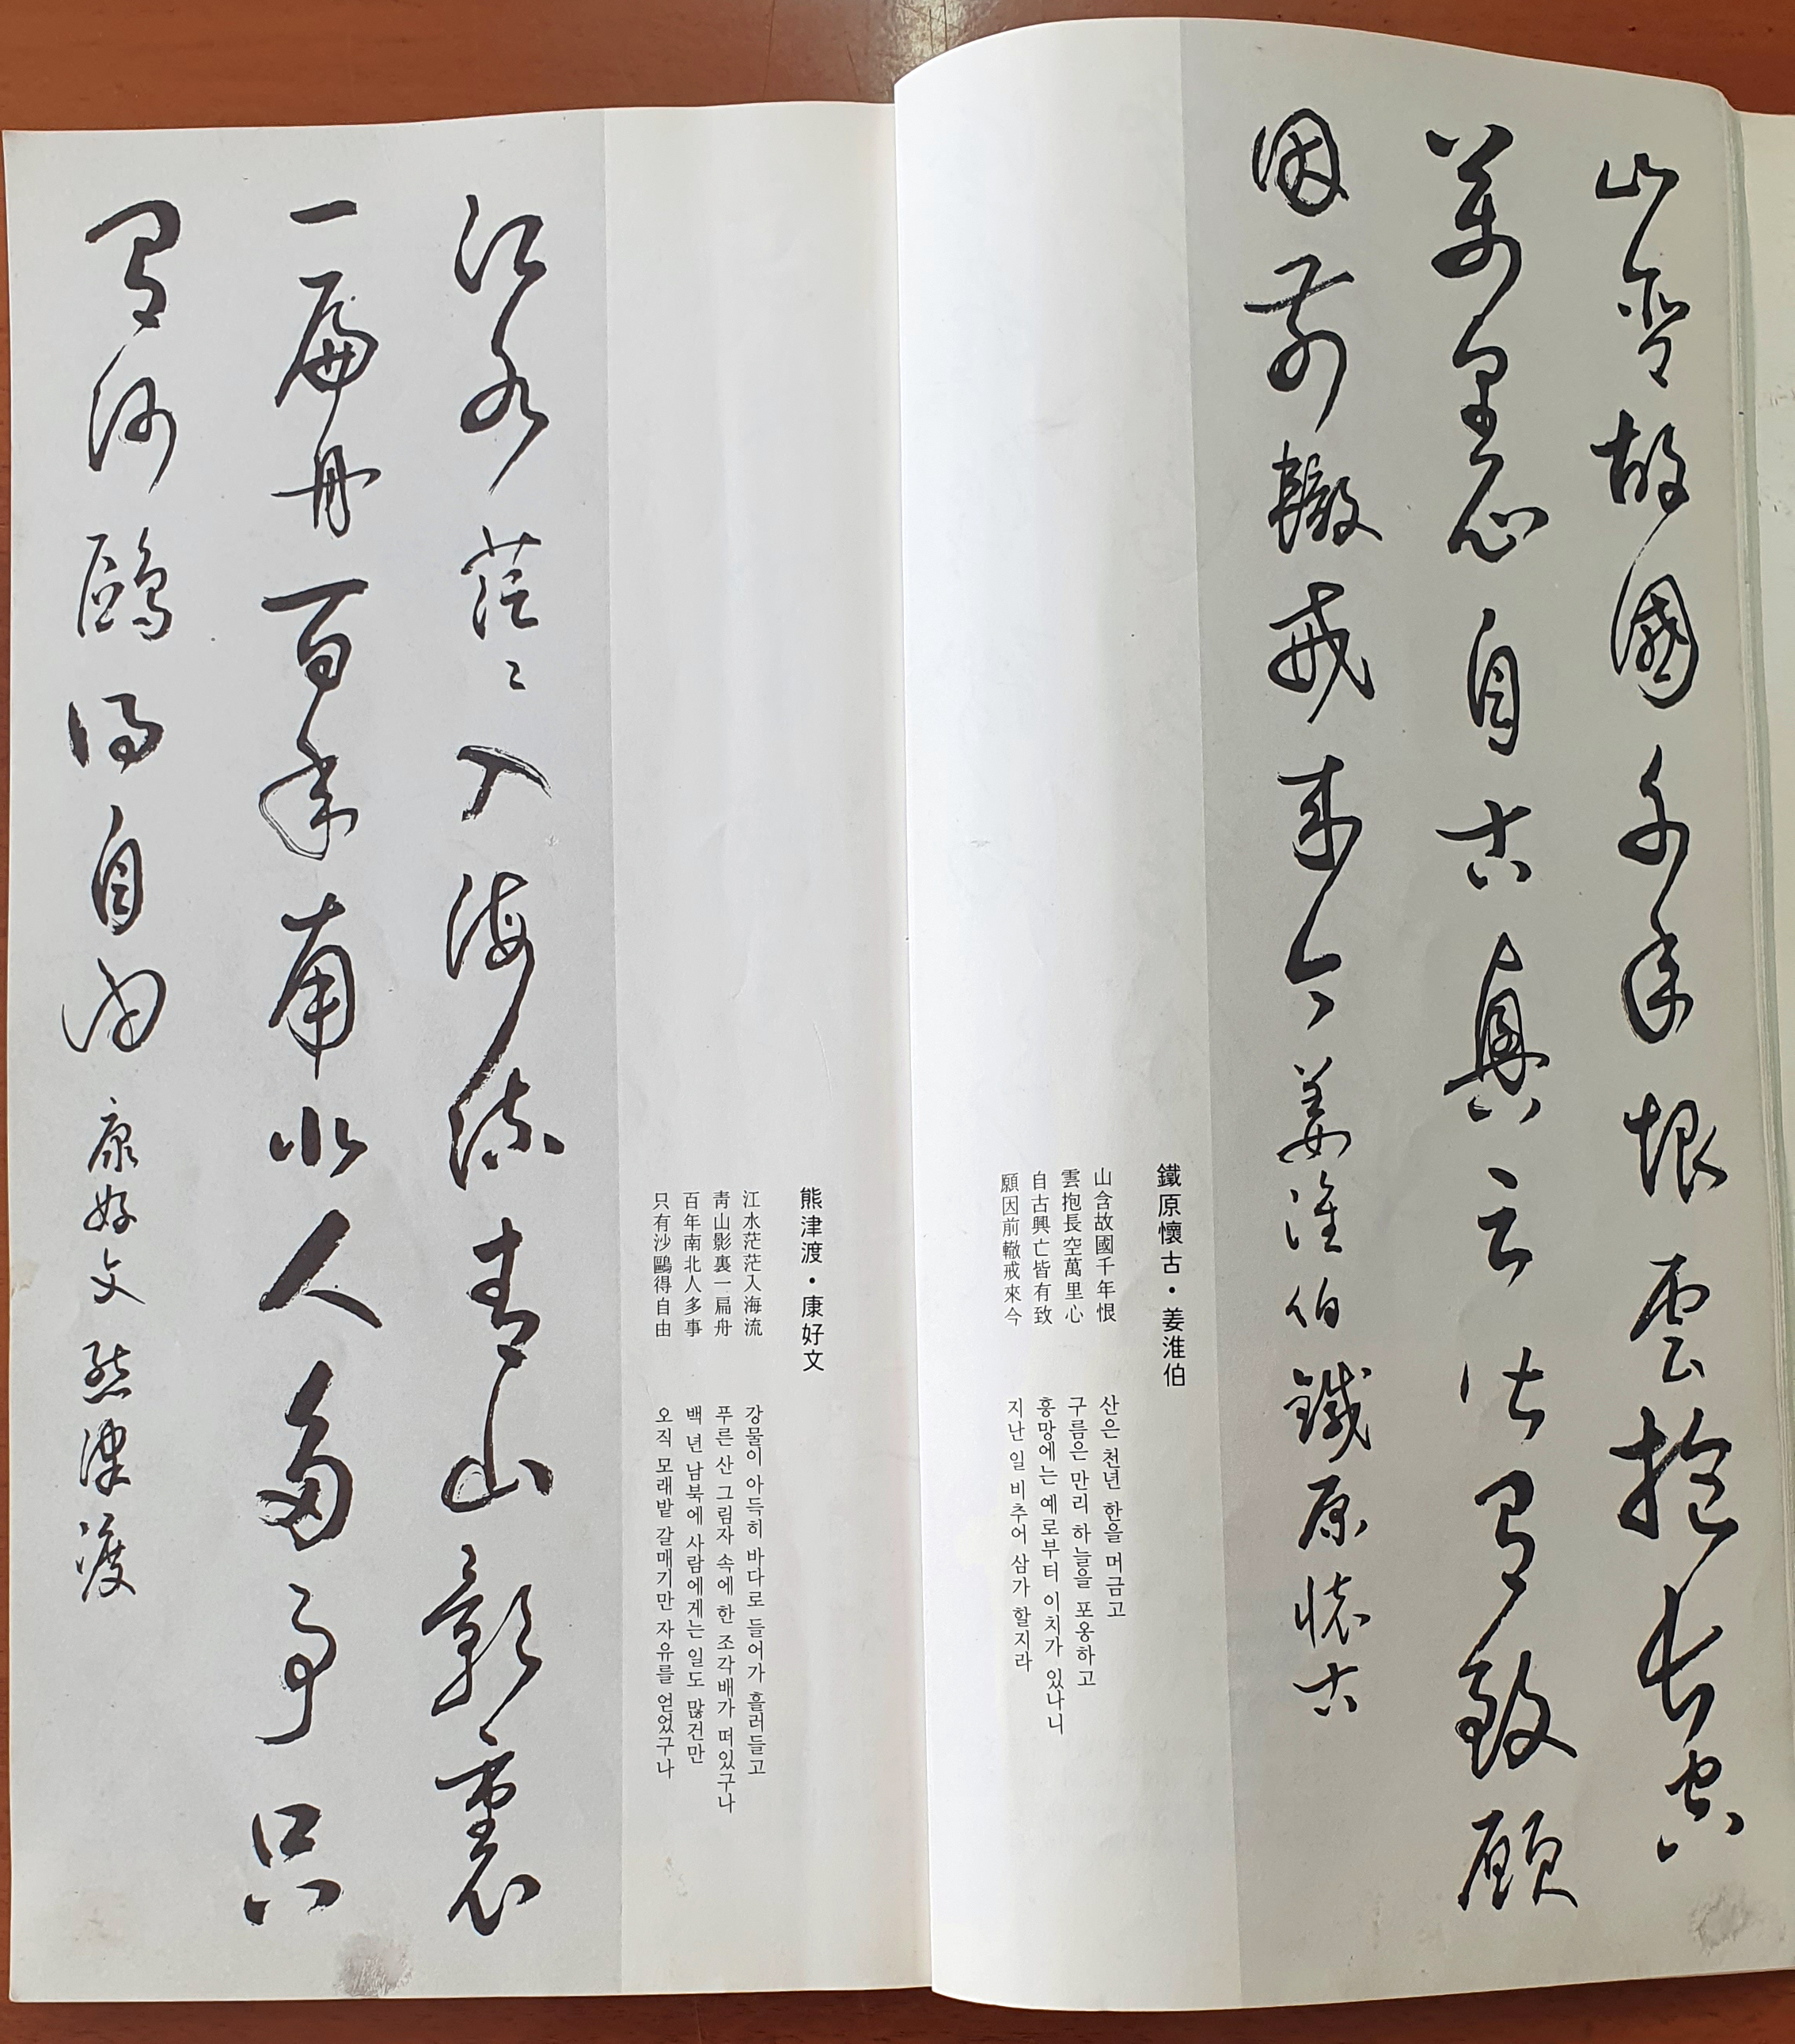 山含故國千年恨雲抱長空
萬里心自古興亡皆有致願
因前轍戒來今 姜淮伯 鐵原懷古
鐵原懷古・姜淮伯
山含故國千年恨
雲抱長空萬里心
自古興亡皆有致
願因前轍戒來今
산은 천년 한을 머금고
구름은 만리 하늘을 포옹하고
흥망에는 예로부터 이치가 있나니
지난 일 비추어 삼가 할지라
熊津渡・康好文
江水茫茫入海流
靑山影裏一扁舟
百年南北人多事
只有沙鷗得自由
강물이 아득히 바다로 들어가 흘러들고
푸른 산 그림자 속에 한 조각배가 떠있구나
백 년 남북에 사람에게는 일도 많건만
오직 모래밭 갈매기만 자유를 얻었구나
江水茫〻入海流青山影裏
一扁舟百年南北人多事只
有沙鷗得自由 康好文 熊津渡